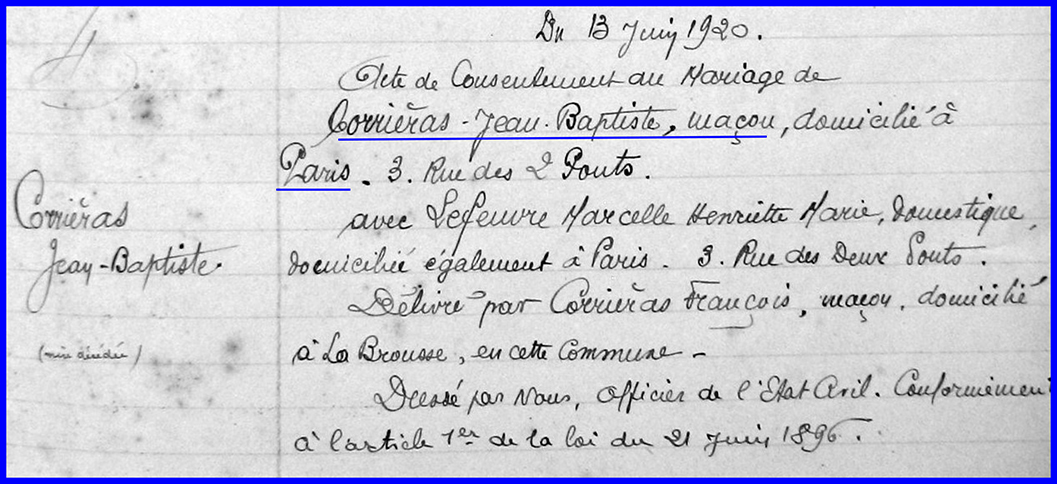 4
Du 13 Juin 1920.
Acte de Consentement au Mariage de
Corriéras - Jean-Baptiste, maçon, domicilié à
Paris. 3. Rue des 2 Ponts.
Corriéras
Jean-Baptiste.
(mère décédée)
avec Lefeuvre Marcelle Henriette Marie, domestique,
domiciliée également à Paris. 3. Rue des Deux Ponts.
Délivré par Corriéras François, maçon, domicilié
à La Brousse, en cette Commune -
Dressé par Nous, Officier de l'Etat Civil. Conformément
à l'article 1er de la loi du 21 Juin 1896.